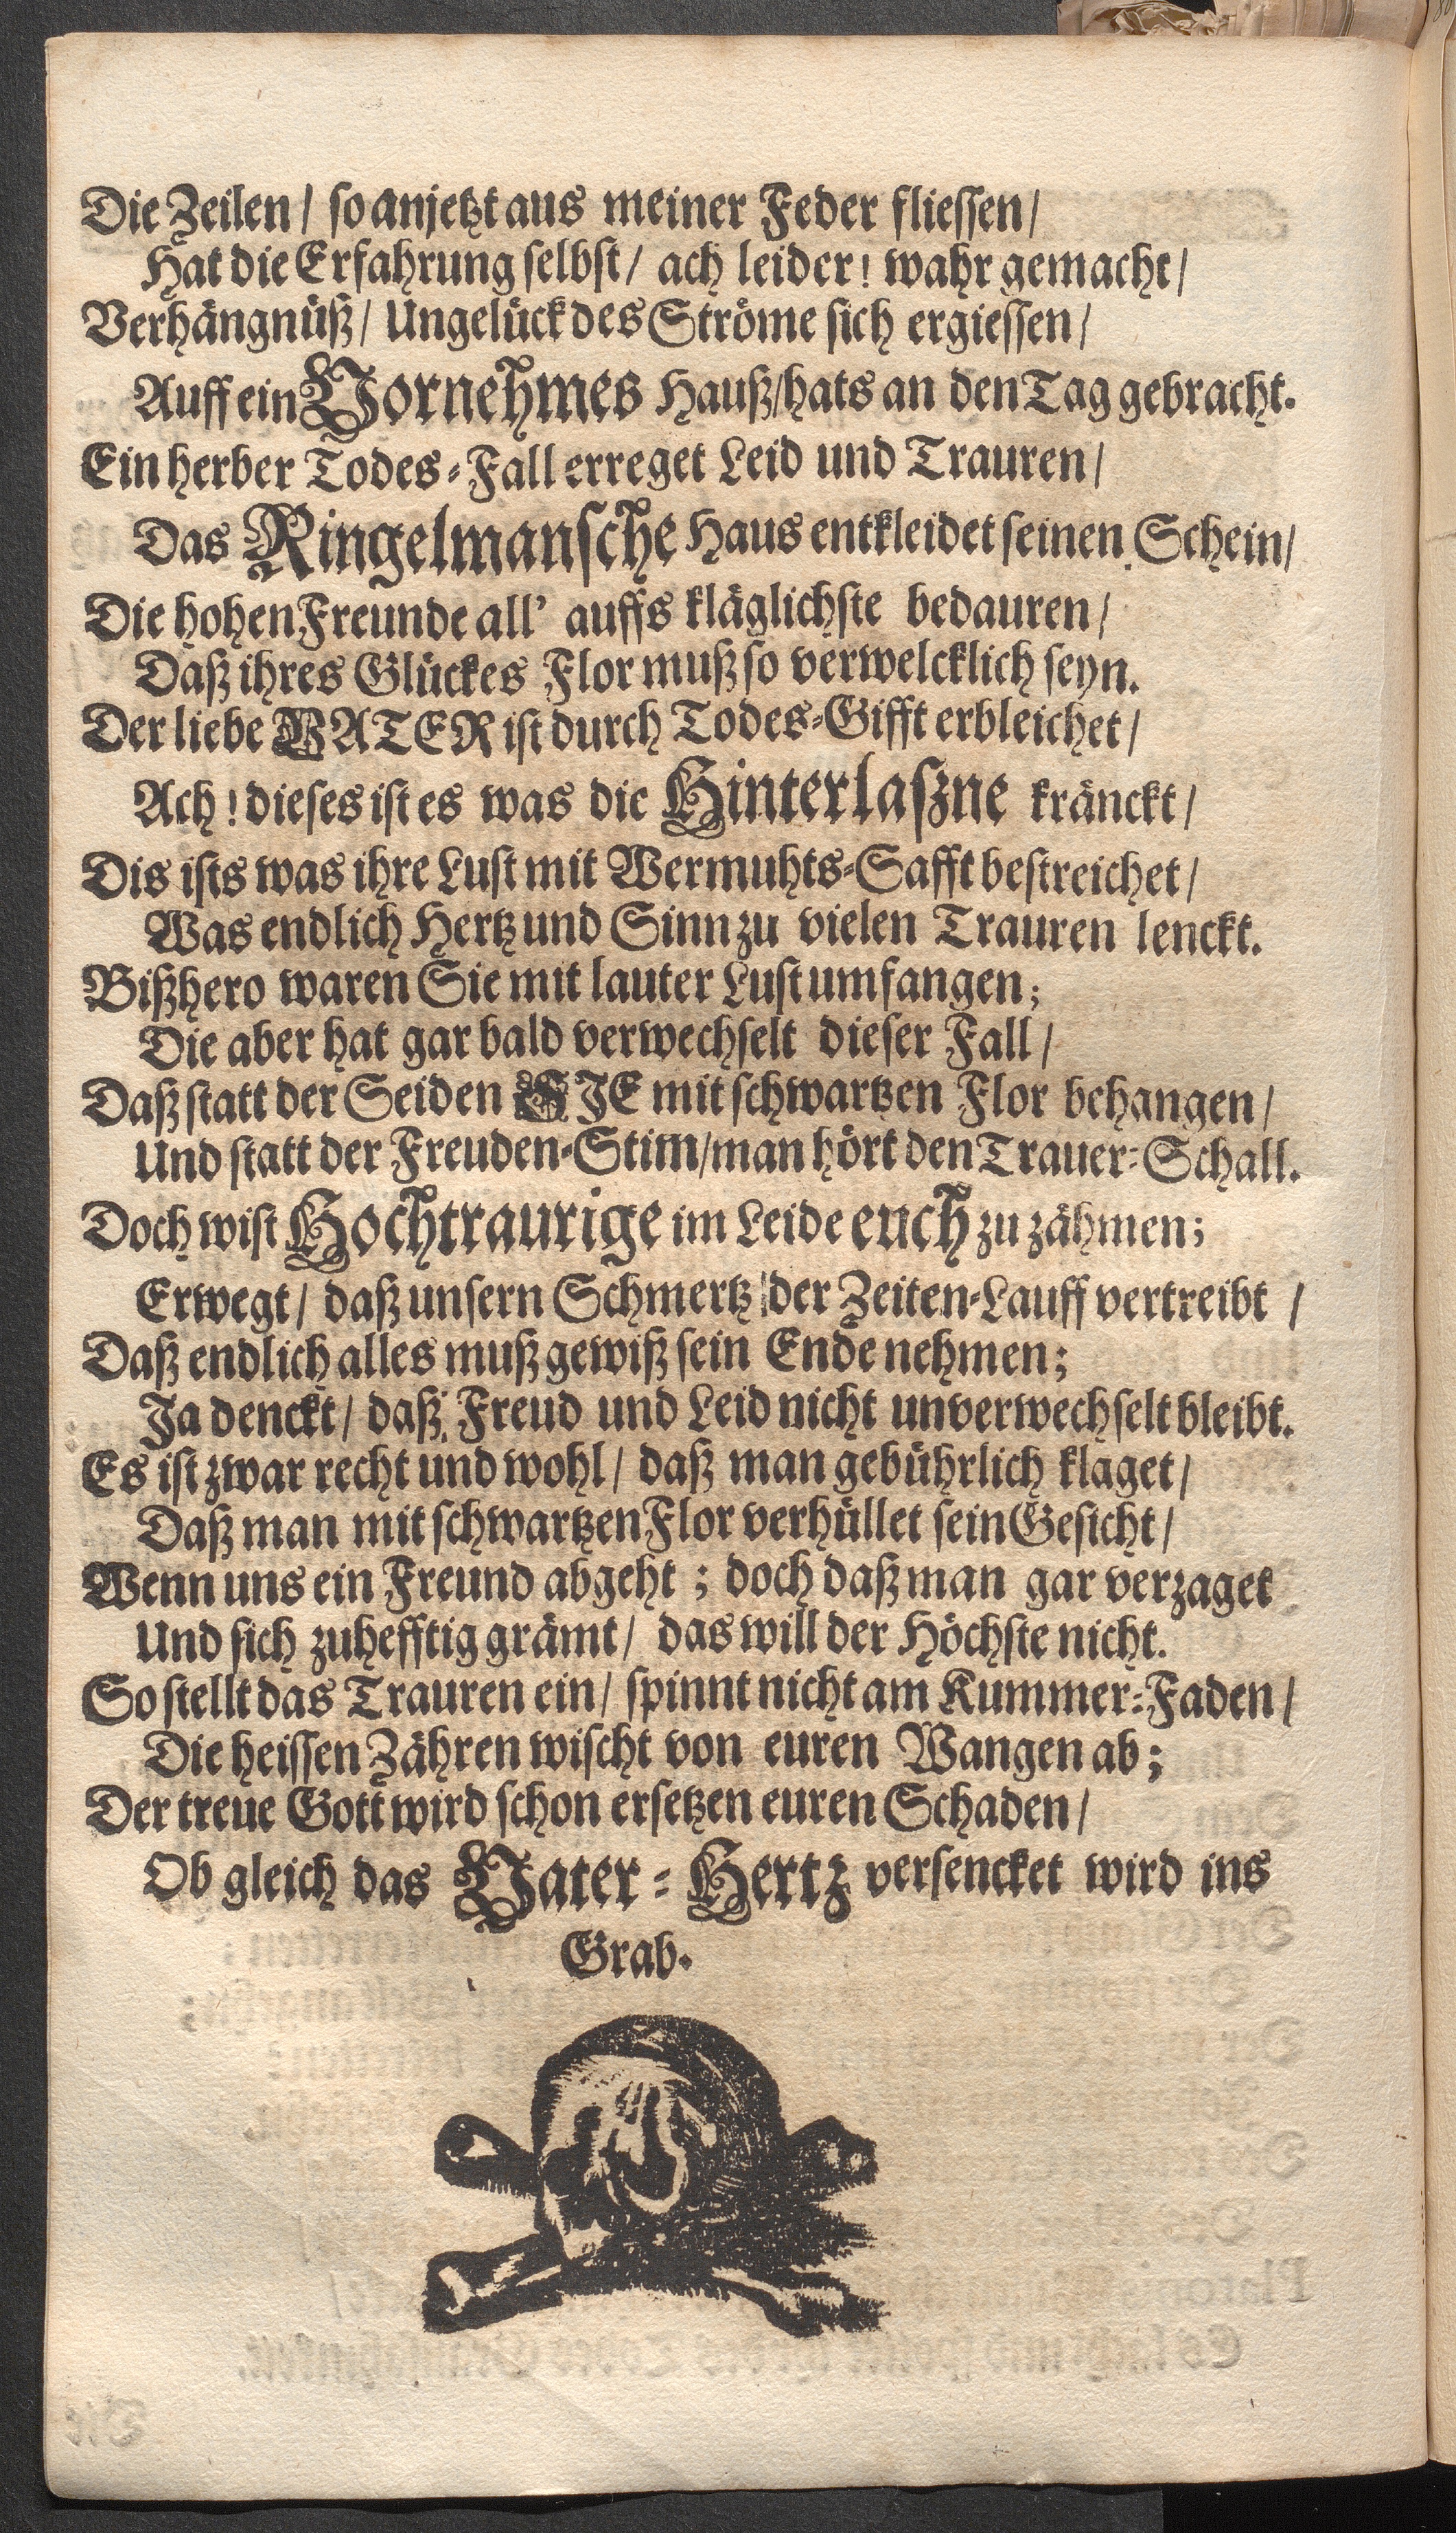 Die Zeilen / so anjetzt aus meiner Feder fliessen /
Hat die Erfahrung selbst / ach leider! wahr gemacht /
Verhängnüß / Ungelück des Ströme sich ergiessen /
Auff ein Vornehmes Hauß / hats an den Tag gebracht.
Ein herber Todes-Fall erreget Leid und Trauren /
Das Ringelmansche Haus entkleidet seinen Schein /
Die hohen Freunde all' auffs kläglichste bedauren /
Daß ihres Glückes Flor muß so verwelcklich seyn.
Der liebe VATER ist durch Todes-Gifft erbleichet /
Ach! dieses ist es was die Hinterlaßne kränckt /
Dis ists was ihre Lust mit Wermuhts-Safft bestreichet /
Was endlich Hertz und Sinn zu vielen Trauren lenckt.
Bißhero waren Sie mit lauter Lust umfangen;
Die aber hat gar bald verwechselt dieser Fall /
Daß statt der Seiden SJE mit schwartzen Flor behangen /
Und statt der Freuden-Stim / man hört den Trauer-Schall.
Doch wist Hochtraurige im Leide euch zu zähmen;
Erwegt / daß unsern Schmertz der Zeiten-Lauff vertreibt /
Daß endlich alles muß gewiß sein Ende nehmen;
Ja denckt / daß Freud und Leid nicht unverwechselt bleibt.
Es ist zwar recht und wohl / daß man gebührlich klaget /
Daß man mit schwartzen Flor verhüllet sein Gesicht /
Wenn uns ein Freund abgeht; doch daß man gar verzaget
Und sich zuhefftig grämt / das will der Höchste nicht.
So stellt das Trauren ein / spinnt nicht am Kummer-Faden /
Die heissen Zähren wischt von euren Wangen ab;
Der treue Gott wird schon ersetzen euren Schaden /
Ob gleich das Vater-Hertz versencket wird ins
Grab.